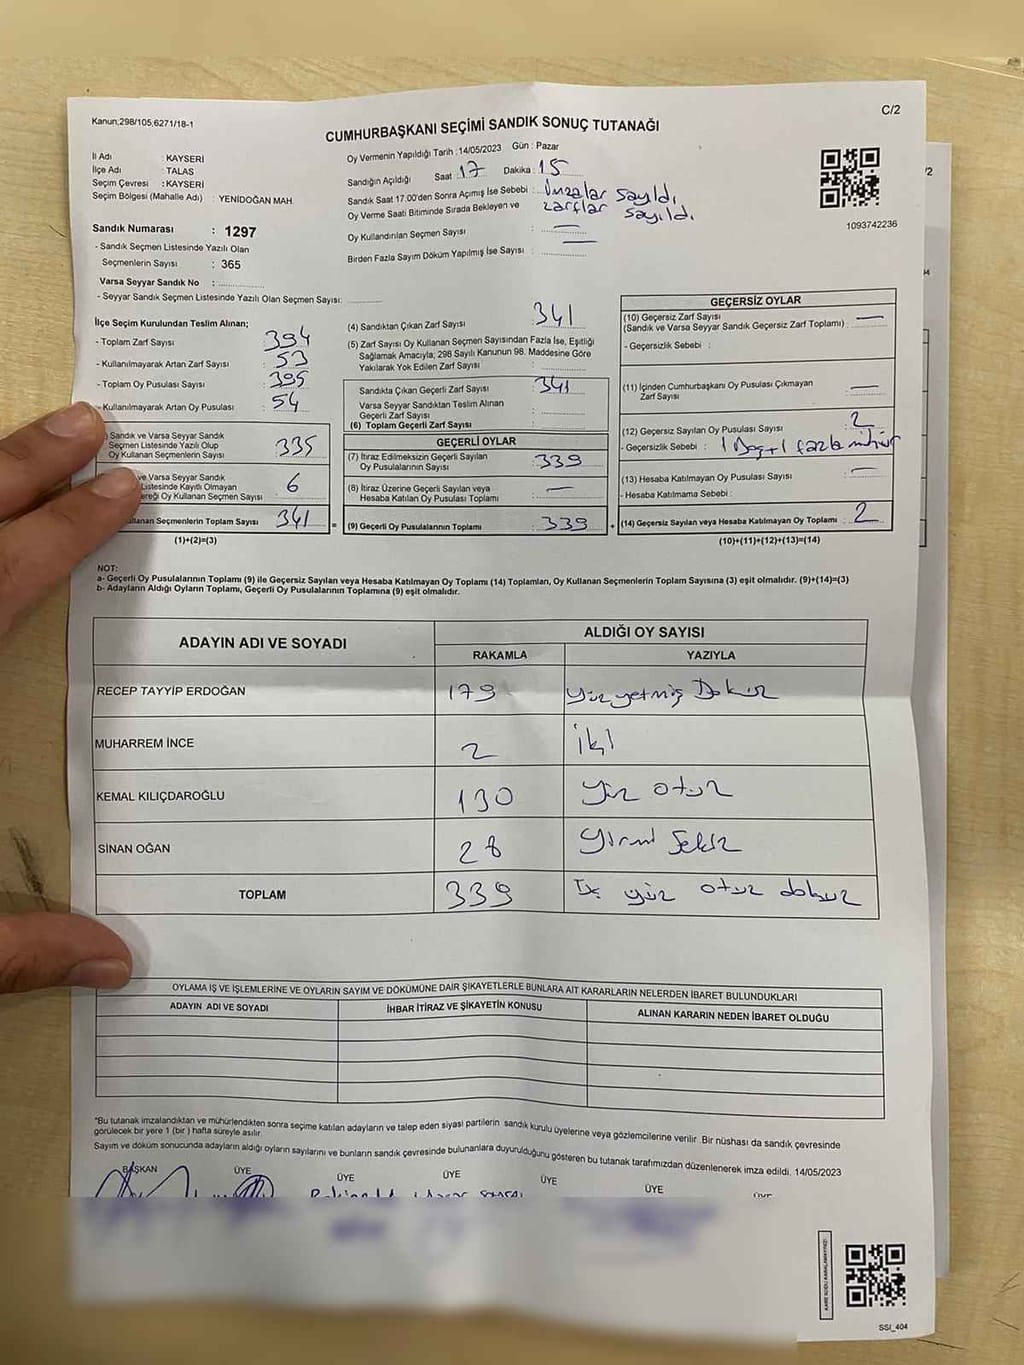 Kanun;298/105,6271/18-1
C/2
CUMHURBAŞKANI SEÇİMİ SANDIK SONUÇ TUTANAĞI
İl Adı : KAYSERİ
İlçe Adı : TALAS
Seçim Çevresi : KAYSERİ
Seçim Bölgesi (Mahalle Adı) : YENİDOĞAN MAH.
Sandık Numarası : 1297
- Sandık Seçmen Listesinde Yazılı Olan
Seçmenlerin Sayısı : 365
Varsa Seyyar Sandık No :
- Seyyar Sandık Seçmen Listesinde Yazılı Olan Seçmen Sayısı:
Oy Vermenin Yapıldığı Tarih :14/05/2023 Gün : Pazar
Sandığın Açıldığı Saat 17 Dakika 15
Sandık Saat 17.00'den Sonra Açımış İse Sebebi : İmzalar sayıldı,
Oy Verme Saati Bitiminde Sırada Bekleyen ve zarflar sayıldı.
Oy Kullandırılan Seçmen Sayısı : —
Birden Fazla Sayım Döküm Yapılmış İse Sayısı : —
1093742236
İlçe Seçim Kurulundan Teslim Alınan;
- Toplam Zarf Sayısı : 394
- Kullanılmayarak Artan Zarf Sayısı : 53
- Toplam Oy Pusulası Sayısı : 395
- Kullanılmayarak Artan Oy Pusulası : 54
) Sandık ve Varsa Seyyar Sandık
Seçmen Listesinde Yazılı Olup
Oy Kullanan Seçmenlerin Sayısı : 335
ve Varsa Seyyar Sandık
Listesinde Kayıtlı Olmayan
ereği Oy Kullanan Seçmen Sayısı : 6
ullanan Seçmenlerin Toplam Sayısı : 341
(1)+(2)=(3)
(4) Sandıktan Çıkan Zarf Sayısı : 341
(5) Zarf Sayısı Oy Kullanan Seçmen Sayısından Fazla İse, Eşitliği
Sağlamak Amacıyla; 298 Sayılı Kanunun 98. Maddesine Göre
Yakılarak Yok Edilen Zarf Sayısı :
Sandıkta Çıkan Geçerli Zarf Sayısı : 341
Varsa Seyyar Sandıktan Teslim Alınan
Geçerli Zarf Sayısı :
(6) Toplam Geçerli Zarf Sayısı :
GEÇERLİ OYLAR
(7) İtiraz Edilmeksizin Geçerli Sayılan
Oy Pusulalarının Sayısı : 339
(8) İtiraz Üzerine Geçerli Sayılan veya
Hesaba Katılan Oy Pusulası Toplamı : —
(9) Geçerli Oy Pusulalarının Toplamı : 339
GEÇERSİZ OYLAR
(10) Geçersiz Zarf Sayısı
(Sandık ve Varsa Seyyar Sandık Geçersiz Zarf Toplamı) : —
- Geçersizlik Sebebi :
(11) İçinden Cumhurbaşkanı Oy Pusulası Çıkmayan
Zarf Sayısı : —
(12) Geçersiz Sayılan Oy Pusulası Sayısı : 2
- Geçersizlik Sebebi : fazla mühür
(13) Hesaba Katılmayan Oy Pusulası Sayısı : —
- Hesaba Katılmama Sebebi :
(14) Geçersiz Sayılan veya Hesaba Katılmayan Oy Toplamı : 2
(10)+(11)+(12)+(13)=(14)
NOT:
a- Geçerli Oy Pusulalarının Toplamı (9) ile Geçersiz Sayılan veya Hesaba Katılmayan Oy Toplamı (14) Toplamları, Oy Kullanan Seçmenlerin Toplam Sayısına (3) eşit olmalıdır. (9)+(14)=(3)
b- Adayların Aldığı Oyların Toplamı, Geçerli Oy Pusulalarının Toplamına (9) eşit olmalıdır.
ADAYIN ADI VE SOYADI
ALDIĞI OY SAYISI
RAKAMLA YAZIYLA
RECEP TAYYİP ERDOĞAN 179 Yüz yetmiş Dokuz
MUHARREM İNCE 2 İki
KEMAL KILIÇDAROĞLU 130 Yüz otuz
SİNAN OĞAN 28 Yirmi Sekiz
TOPLAM 339 Üç yüz otuz dokuz
OYLAMA İŞ VE İŞLEMLERİNE VE OYLARIN SAYIM VE DÖKÜMÜNE DAİR ŞİKAYETLERLE BUNLARA AİT KARARLARIN NELERDEN İBARET BULUNDUKLARI
ADAYIN ADI VE SOYADI İHBAR İTİRAZ VE ŞİKAYETİN KONUSU ALINAN KARARIN NEDEN İBARET OLDUĞU
*Bu tutanak imzalandıktan ve mühürlendikten sonra seçime katılan adayların ve talep eden siyasi partilerin sandık kurulu üyelerine veya gözlemcilerine verilir. Bir nüshası da sandık çevresinde
görülecek bir yere 1 (bir ) hafta süreyle asılır.
Sayım ve döküm sonucunda adayların aldığı oyların sayılarını ve bunların sandık çevresinde bulunanlara duyurulduğunu gösteren bu tutanak tarafımızdan düzenlenerek imza edildi. 14/05/2023
BAŞKAN ÜYE ÜYE ÜYE ÜYE ÜYE ÜYE
SSI_404